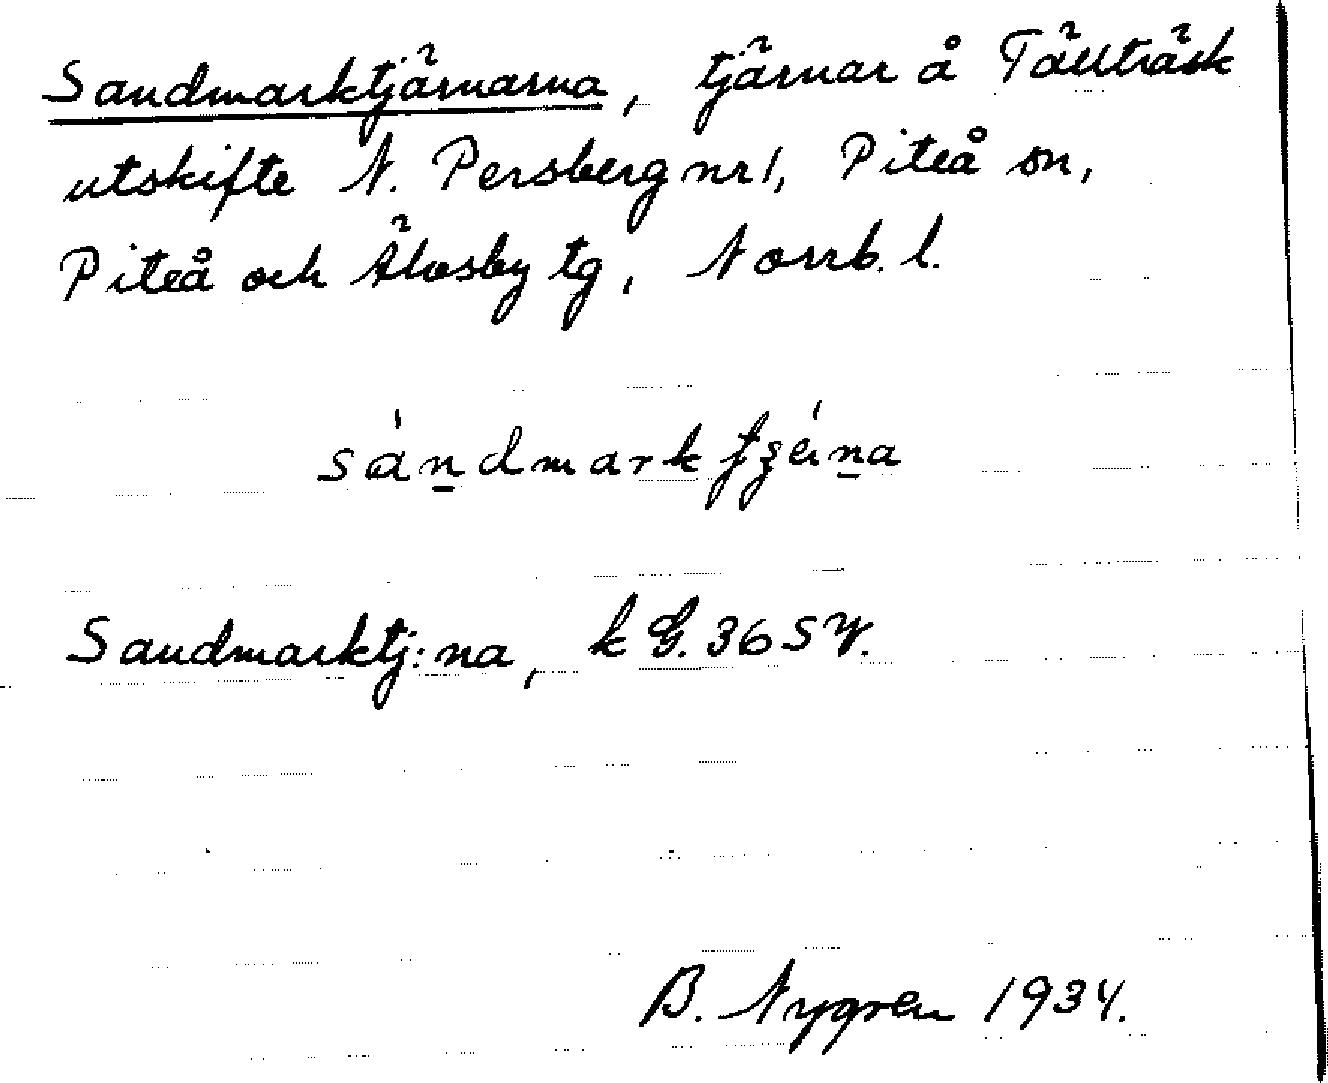 Sandmarktjärnarna, tjärnar å Tällträsk
utskifte N. Persberg nr 1, Piteå sn,
Piteå och Älvsby tg, Norrb. l.
Sandmarktj:na, k G. 36 SV.
B. Nygren 1934.